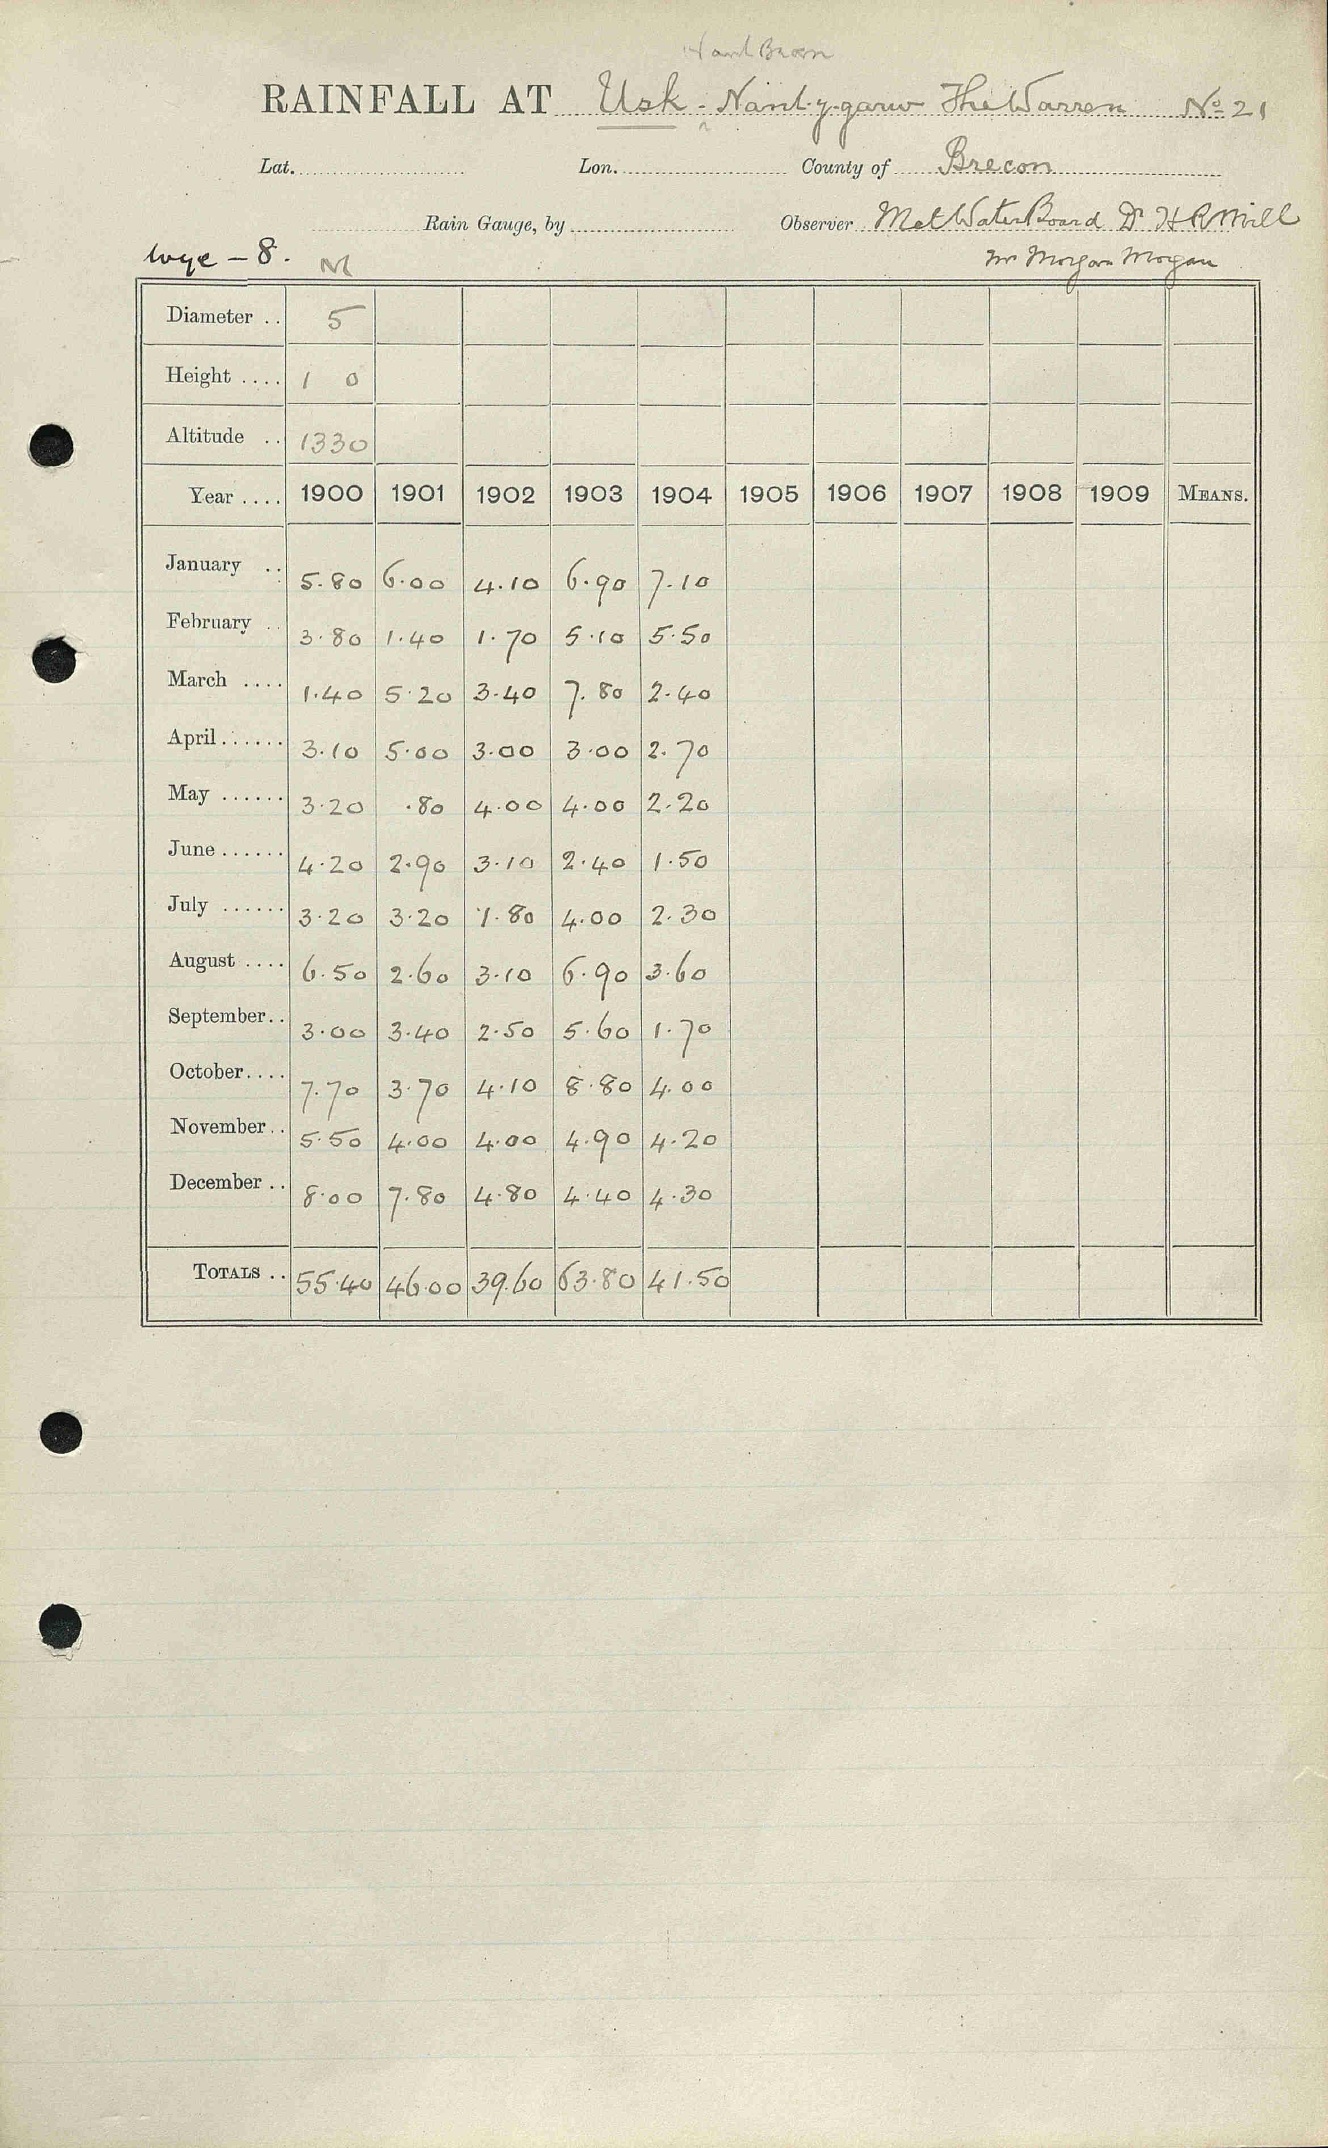 Nant Bran
RAINFALL AT Usk - Nant-y-garw The Warren No 21
Lat. Lon. County of Brecon
Rain Gauge, by Observer Met Water Board Dr H R Mill
Wye - 8. Mr Morgan Morgan
Diameter .. 5
Height .... 1 0
Altitude .. 1330
Year .... 1900 1901 1902 1903 1904 1905 1906 1907 1908 1909 MEANS.
January .. 5.80 6.00 4.10 6.90 7.10
February .. 3.80 1.40 1.70 5.10 5.50
March .... 1.40 5.20 3.40 7.80 2.40
April ...... 3.10 5.00 3.00 3.00 2.70
May ...... 3.20 .80 4.00 4.00 2.20
June ...... 4.20 2.90 3.10 2.40 1.50
July ...... 3.20 3.20 1.80 4.00 2.30
August .... 6.50 2.60 3.10 6.90 3.60
September.. 3.00 3.40 2.50 5.60 1.70
October.... 7.70 3.70 4.10 8.80 4.00
November.. 5.50 4.00 4.00 4.90 4.20
December .. 8.00 7.80 4.80 4.40 4.30
TOTALS .. 55.40 46.00 39.60 63.80 41.50